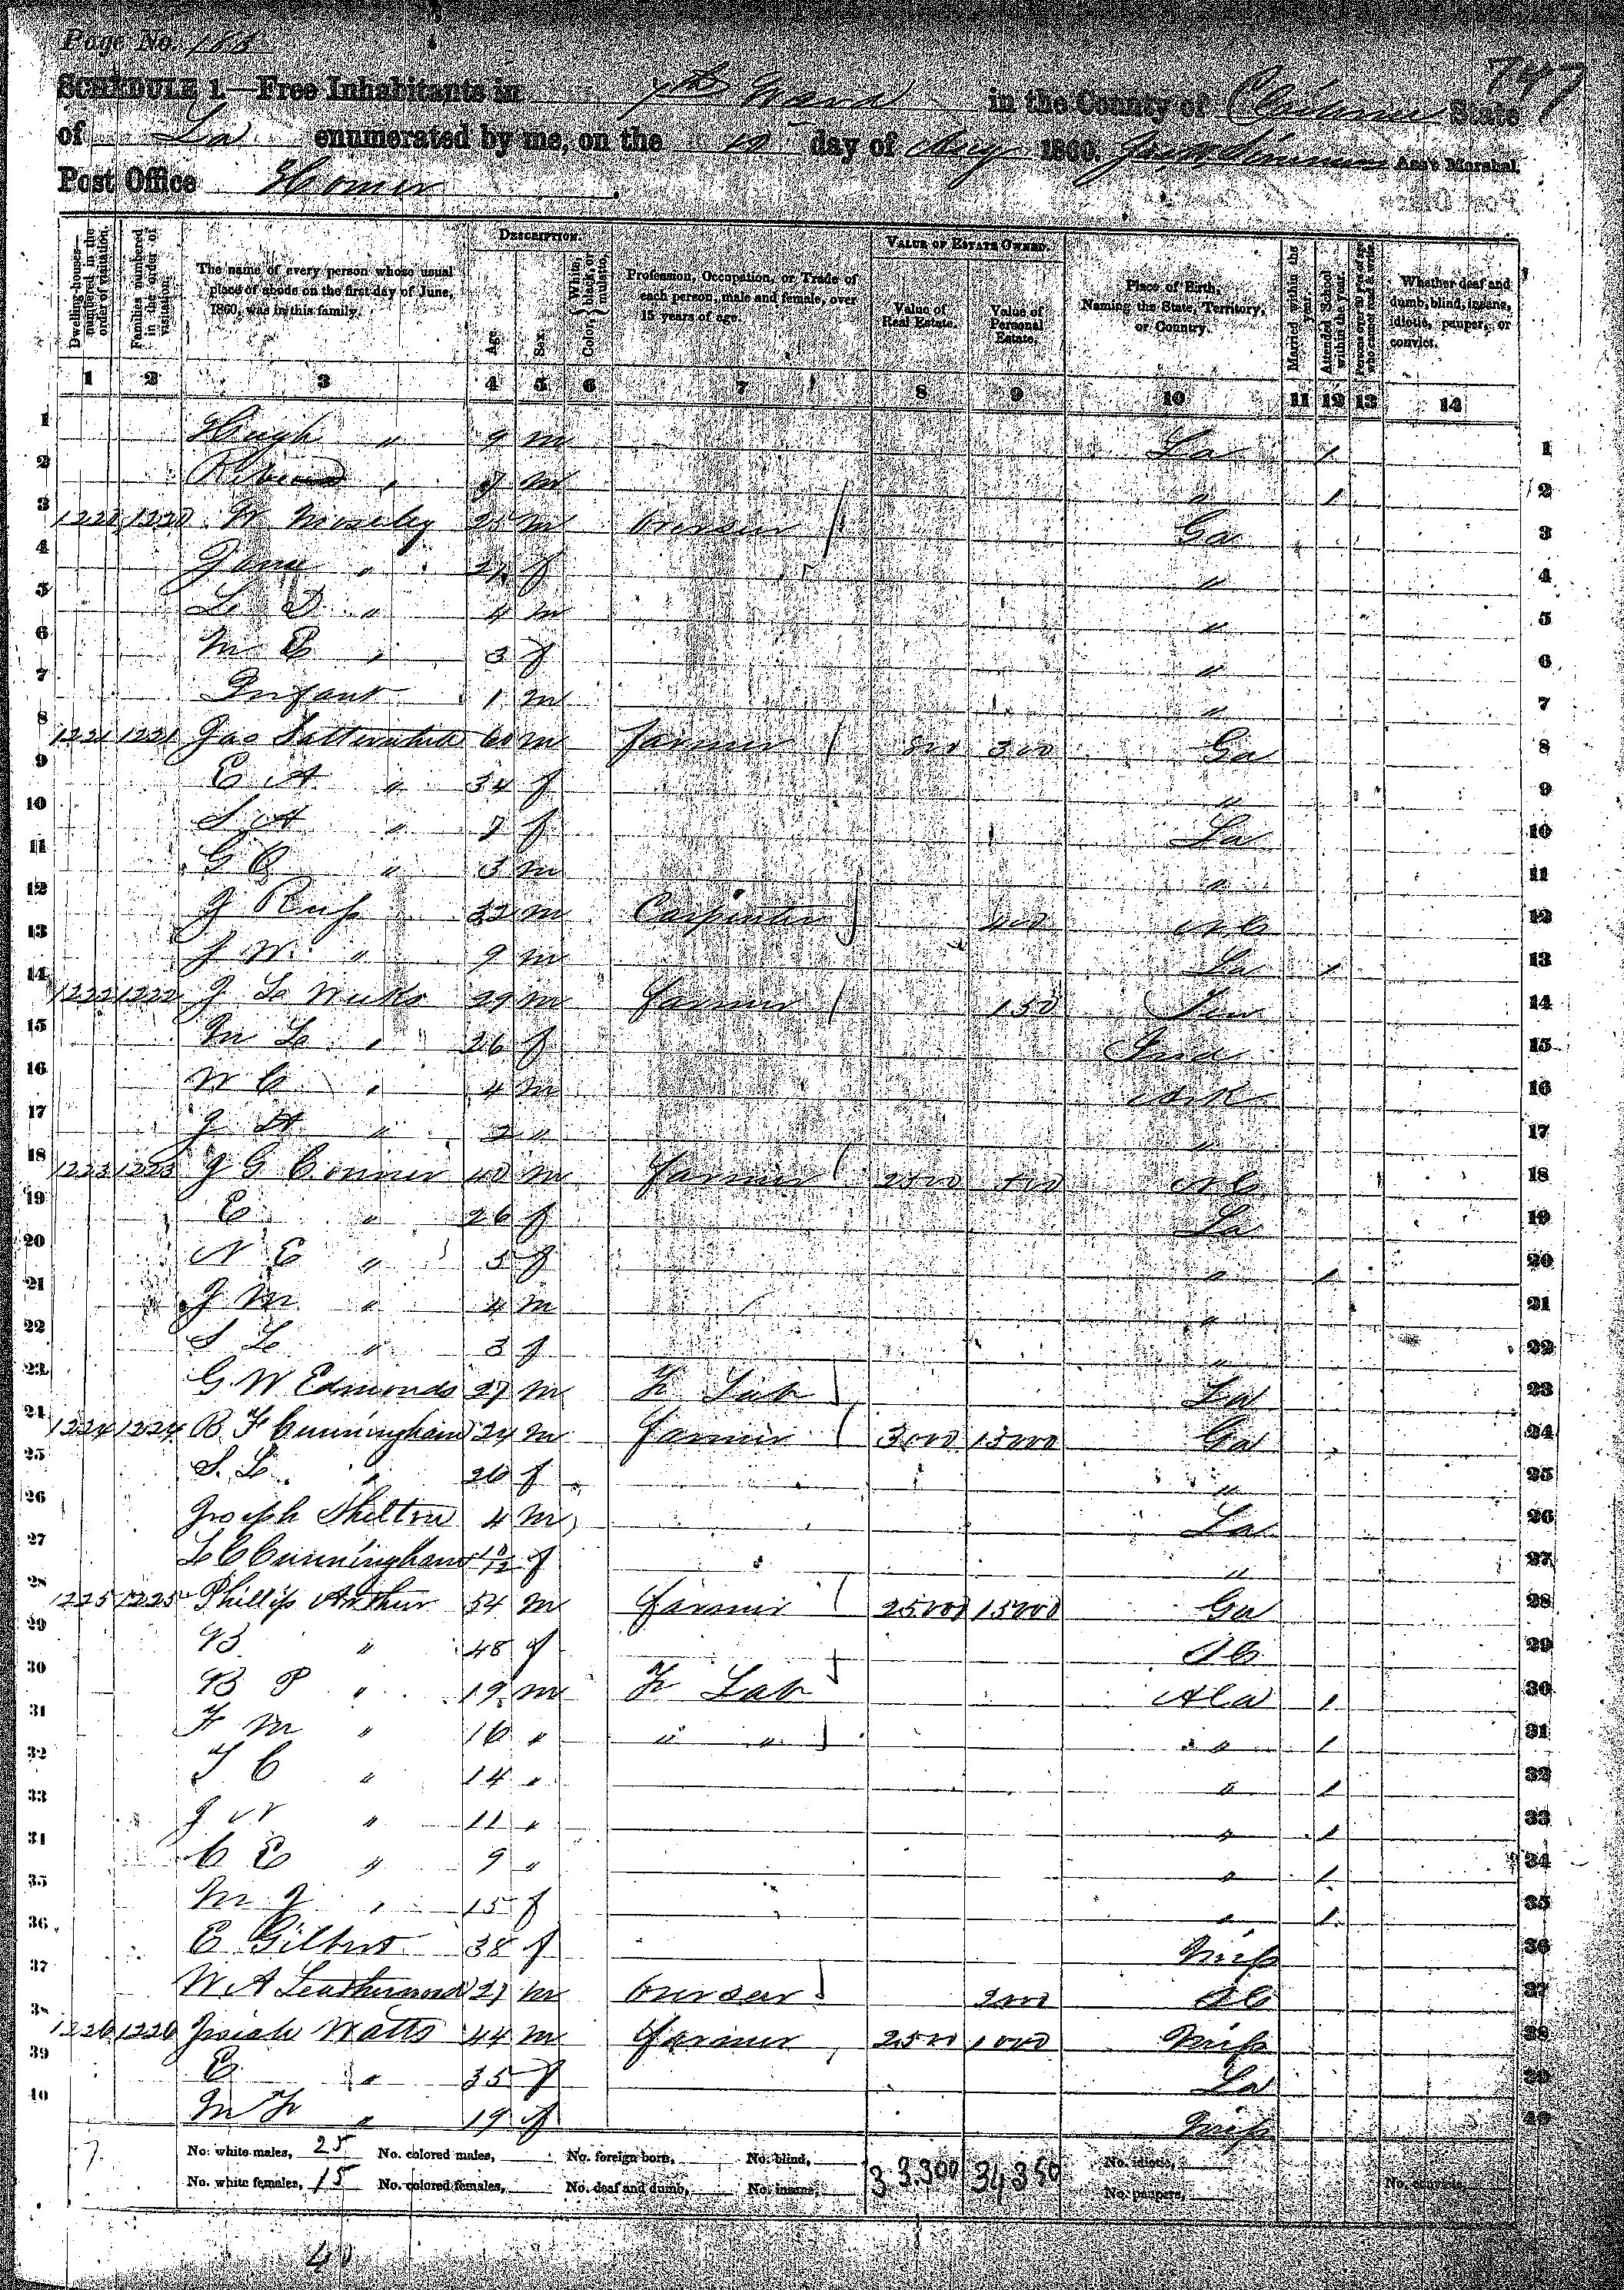 Page No. 188
747
SCHEDULE 1.—Free Inhabitants in 7th Ward in the County of Claiborne State
of La enumerated by me, on the 18 day of Aug 1860. Ass't Marshal.
Post Office Homer
DESCRIPTION.
VALUE OF ESTATE OWNED.
Dwelling-houses—numbered in the order of visitation.
Families numbered in the order of visitation.
The name of every person whose usual place of abode on the first day of June, 1860, was in this family.
Age.
Sex.
Color, White, black, or mulatto.
Profession, Occupation, or Trade of each person, male and female, over 15 years of age.
Value of Real Estate.
Value of Personal Estate.
Place of Birth, Naming the State, Territory, or Country.
Married within the year.
Attended School within the year.
Persons over 20 y'rs of age who cannot read & write.
Whether deaf and dumb, blind, insane, idiotic, pauper, or convict.
1 2 3 4 5 6 7 8 9 10 11 12 13 14
1 Hugh " 9 m La / 1
2 m " / 2
3 1220 1220 W Moseley 25 m Overseer Ga 3
4 Jane " f " 4
5 L D " 4 m " 5
6 M E " 3 f " 6
7 Infant 1 m " 7
8 1221 1221 Jas Satterwhite 60 m Farmer 800 300 Ga 8
9 E A " 34 f " 9
10 S A " 7 f La 10
11 G B " 3 m " 11
12 J Russ 33 m Carpenter N C 12
13 J W " 9 m La / 13
14 1222 1222 J L 29 m Farmer 150 Ten 14
15 M L " 26 f Ind 15
16 W C " 4 m Ark 16
17 J A " 2 " " 17
18 1223 1223 J G Conner 40 m Farmer 2500 500 N C 18
19 E " 26 f La 19
20 N E " 5 f " / 20
21 J M " 4 m " 21
22 S L " 3 f " 22
23 G W Edmonds 27 m F Lab La 23
24 1224 1224 B F Cunningham 24 m Farmer 3000 15000 Ga 24
25 S. L. " 26 f " 25
26 Joseph Shelton 4 m La 26
27 L C Cunningham 10/12 f " 27
28 1225 1225 Phillip Arthur 54 m Farmer 25000 15000 Ga 28
29 B " 48 f S C 29
30 B P " 19 m F Lab Ala / 30
31 F M " 16 " " " " / 31
32 T C " 14 " " / 32
33 J W " 11 " " / 33
34 C E " 9 " " / 34
35 M J " 15 f " / 35
36 E Gilbert 38 f Miss 36
37 W A Leatherwood 27 m Overseer 2000 S C 37
38 1226 1226 Josiah Watts 44 m Farmer 2500 1000 Miss 38
39 E " 35 f La 39
40 M F " 19 f Miss 40
No. white males, 25 No. colored males, No. foreign born, No. blind, 33.300 34350 No. idiotic,
No. white females, 15 No. colored females, No. deaf and dumb, No. insane, No. paupers, No. convicts,
40